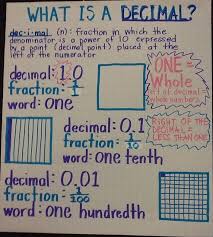 WHAT IS A DECIMAL?
dec·i·mal (n): fraction in which the
denominator is a power of 10 expressed
by a point (decimal point) placed at the
left of the numerator
decimal: 1.0
fraction: 1/1
word: one
ONE =
Whole
left of decimal =
whole numbers
decimal: 0.1
fraction: 1/10
word: one tenth
RIGHT OF THE
DECIMAL =
LESS THAN ONE
decimal: 0.01
fraction: 1/100
word: one hundredth